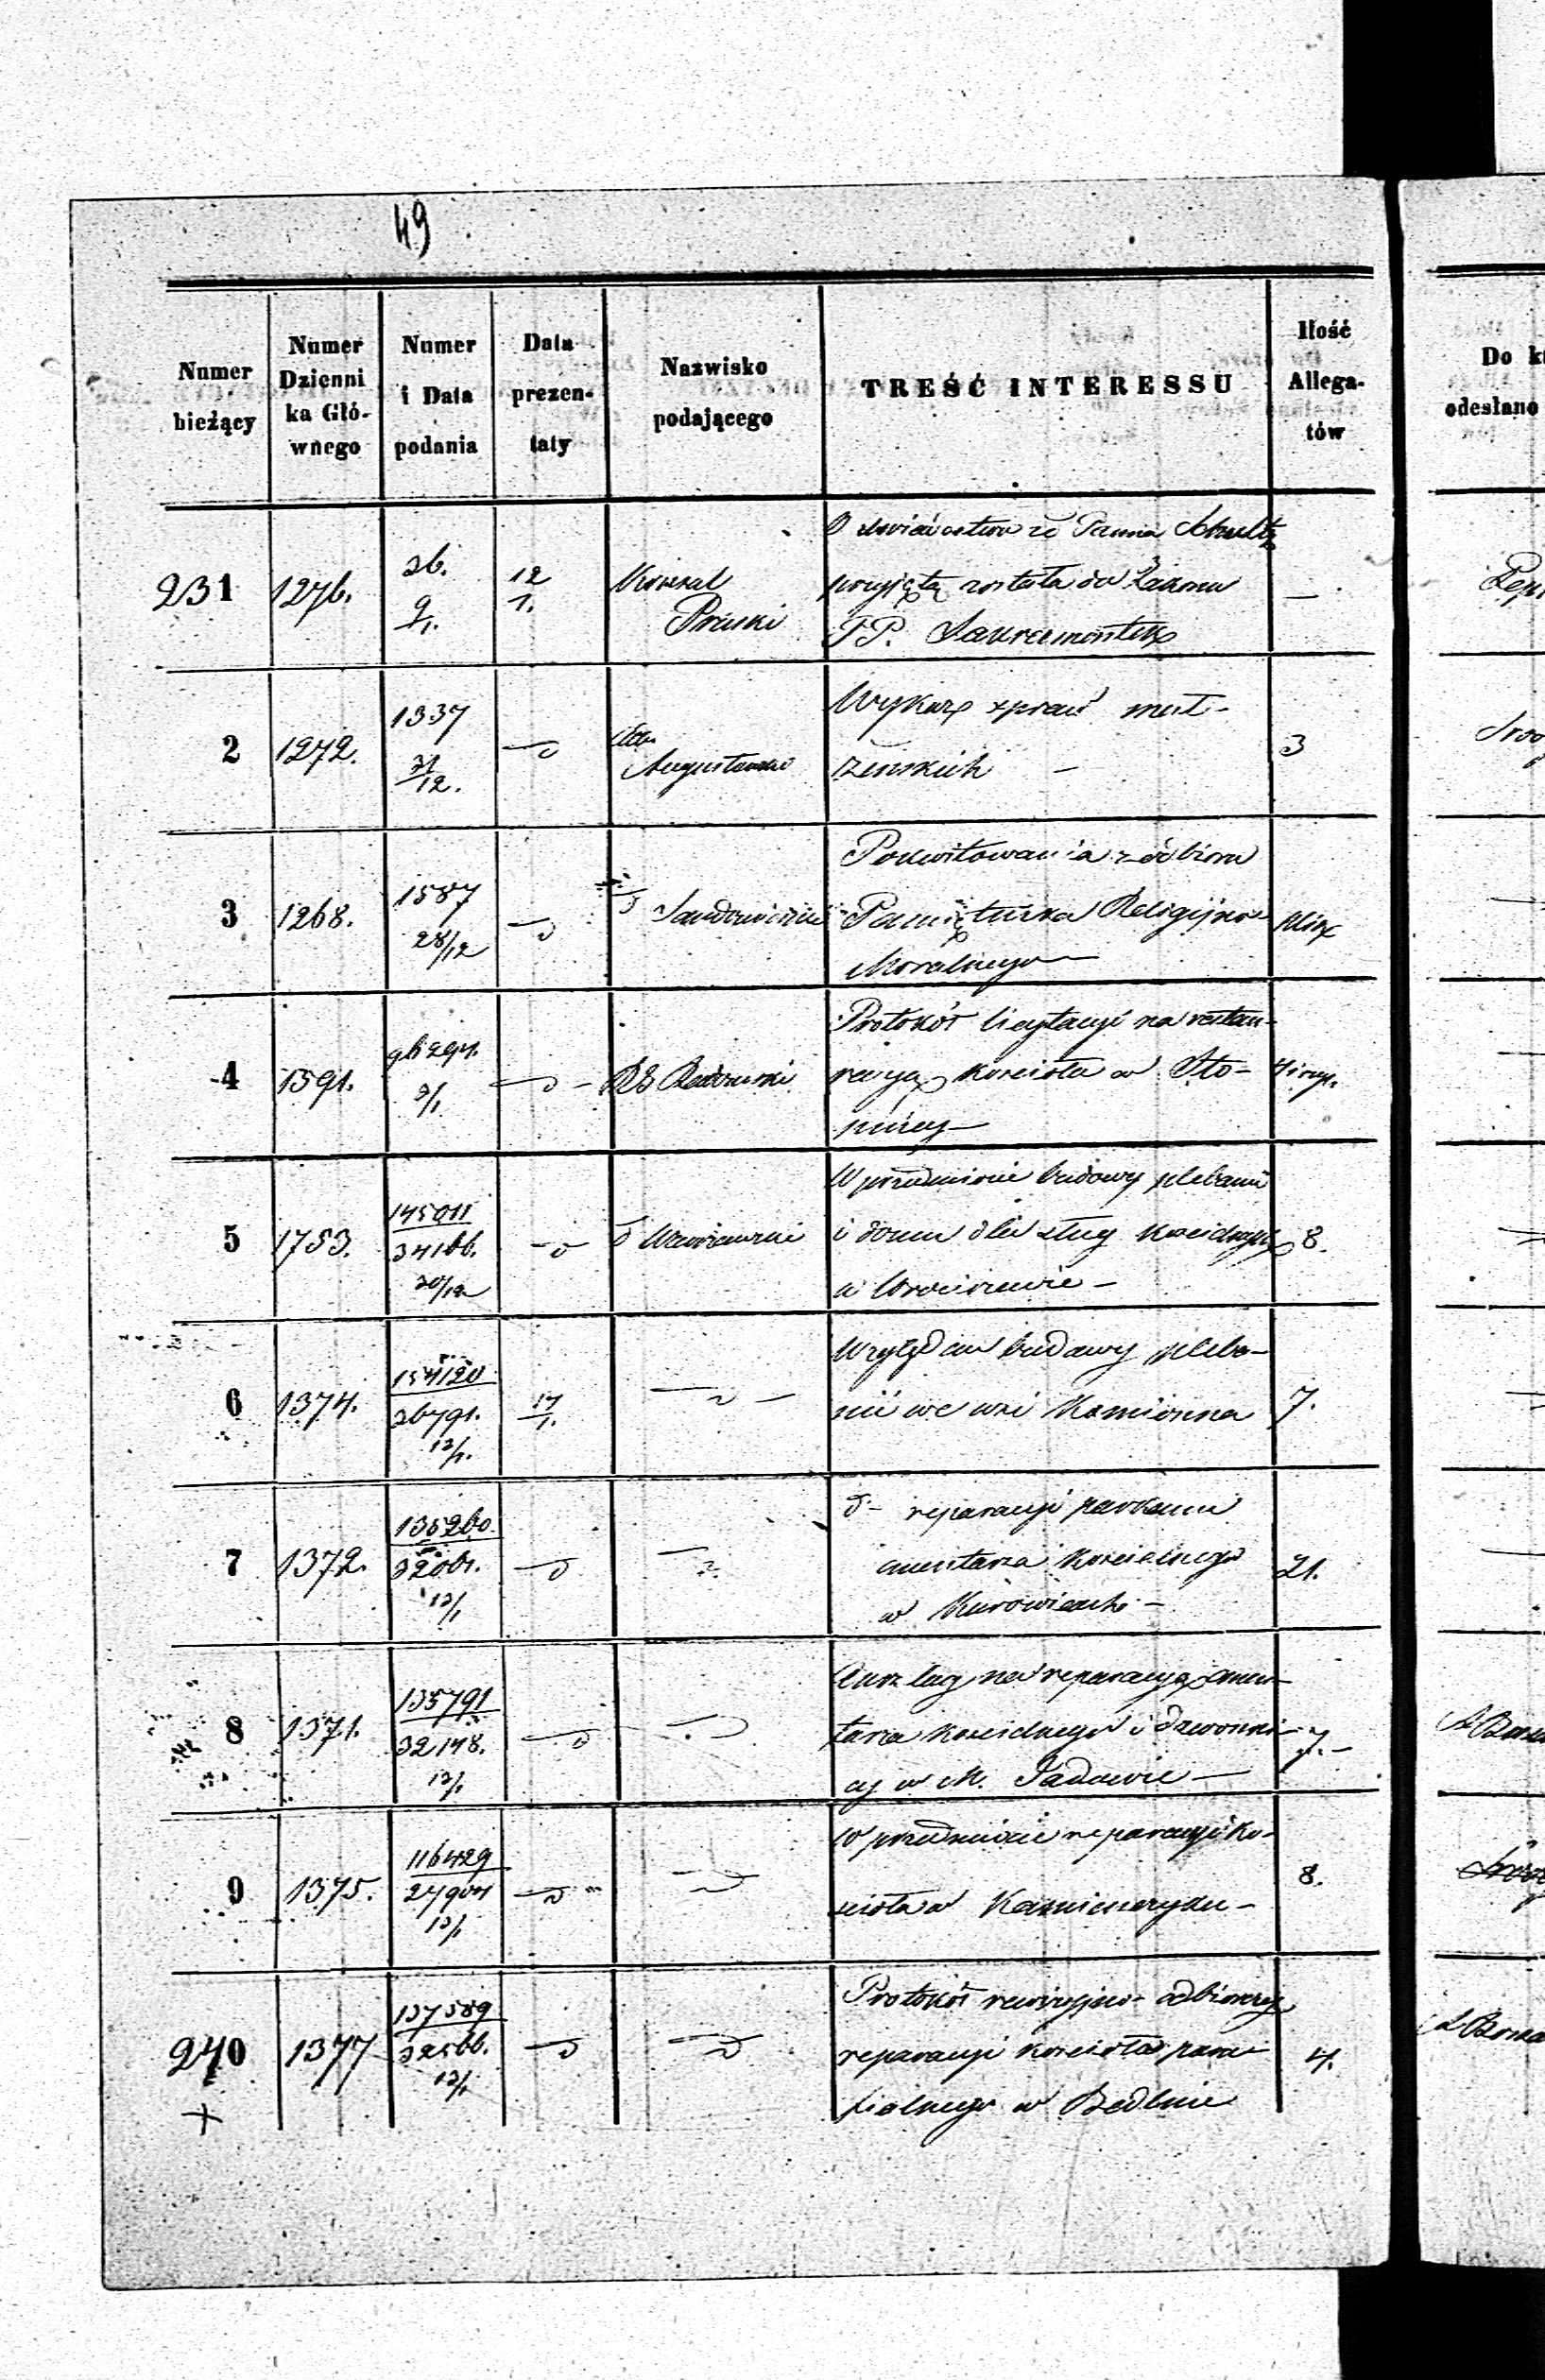 49
Numer bieżący
Numer Dzienni ka Głó- wnego
Numer i Data podania
Data prezen- taty
Nazwisko podającego
TREŚĆ INTERESSU
Ilość Allega- tów
Do
odesłano
231 1276. 26. 9/1. 12 1. Pruski —
Panna Schultz
przyjętą została do Zakonu
PP. Sakramentek
2 1272. 1337 31/12. Augustowski 3
Wykaz spraw mał-
żeńskich —
3 1268. 1587 28/12
Pokwitowania z odbioru
Pamiętnika Religijno
Moralnego —
4 1391. 3/1 RG Radomski
Protokół licytacyi na restau-
racyą kościoła w Sto-
pnicy —
5 1753. 145011 34166. 30/12 d Warszawski 8.
W przedmiocie budowy plebanii
i domu dla sług kościelnych
w
6 1374. 154120 36791. 13/1. 17/1. 7.
Względem budowy pleba-
nii we wsi Kamionna
7 1372. 135260. 13/1 21.
d- reparacyi parkanu
cmentarza kościelnego
w Kurowicach —
8 1371. 135791 32148. 13/1 7. —
Anszlag na reparacyą cmen-
tarza kościelnego i dzwonni-
cy w M. Jadowie —
9 1375. 116429 24904 13/1 8.
W przedmiocie reparacyi ko-
ścioła w Kamieńczyku —
240 1377 137589 32566. 13/1 4.
Protokół rewizyjno- odbiorczy
reparacyi kościoła para-
fialnego w Bedlnie